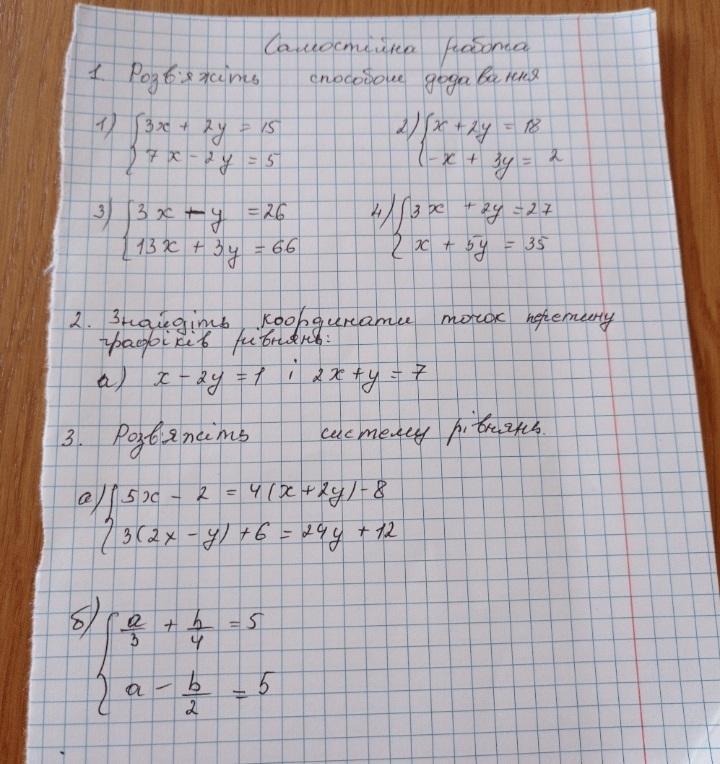 Самостійна робота
1. Розв'яжіть способом додавання
1) {3x + 2y = 15
{7x - 2y = 5
2) {x + 2y = 18
{-x + 3y = 2
3) {3x - y = 26
{13x + 3y = 66
4) {3x + 2y = 27
{x + 5y = 35
2. Знайдіть координати точок перетину
графіків рівнянь:
а) x - 2y = 1 і 2x + y = 7
3. Розв'яжіть систему рівнянь.
а) {5x - 2 = 4(x + 2y) - 8
{3(2x - y) + 6 = 24y + 12
б) {a/3 + b/4 = 5
{a - b/2 = 5